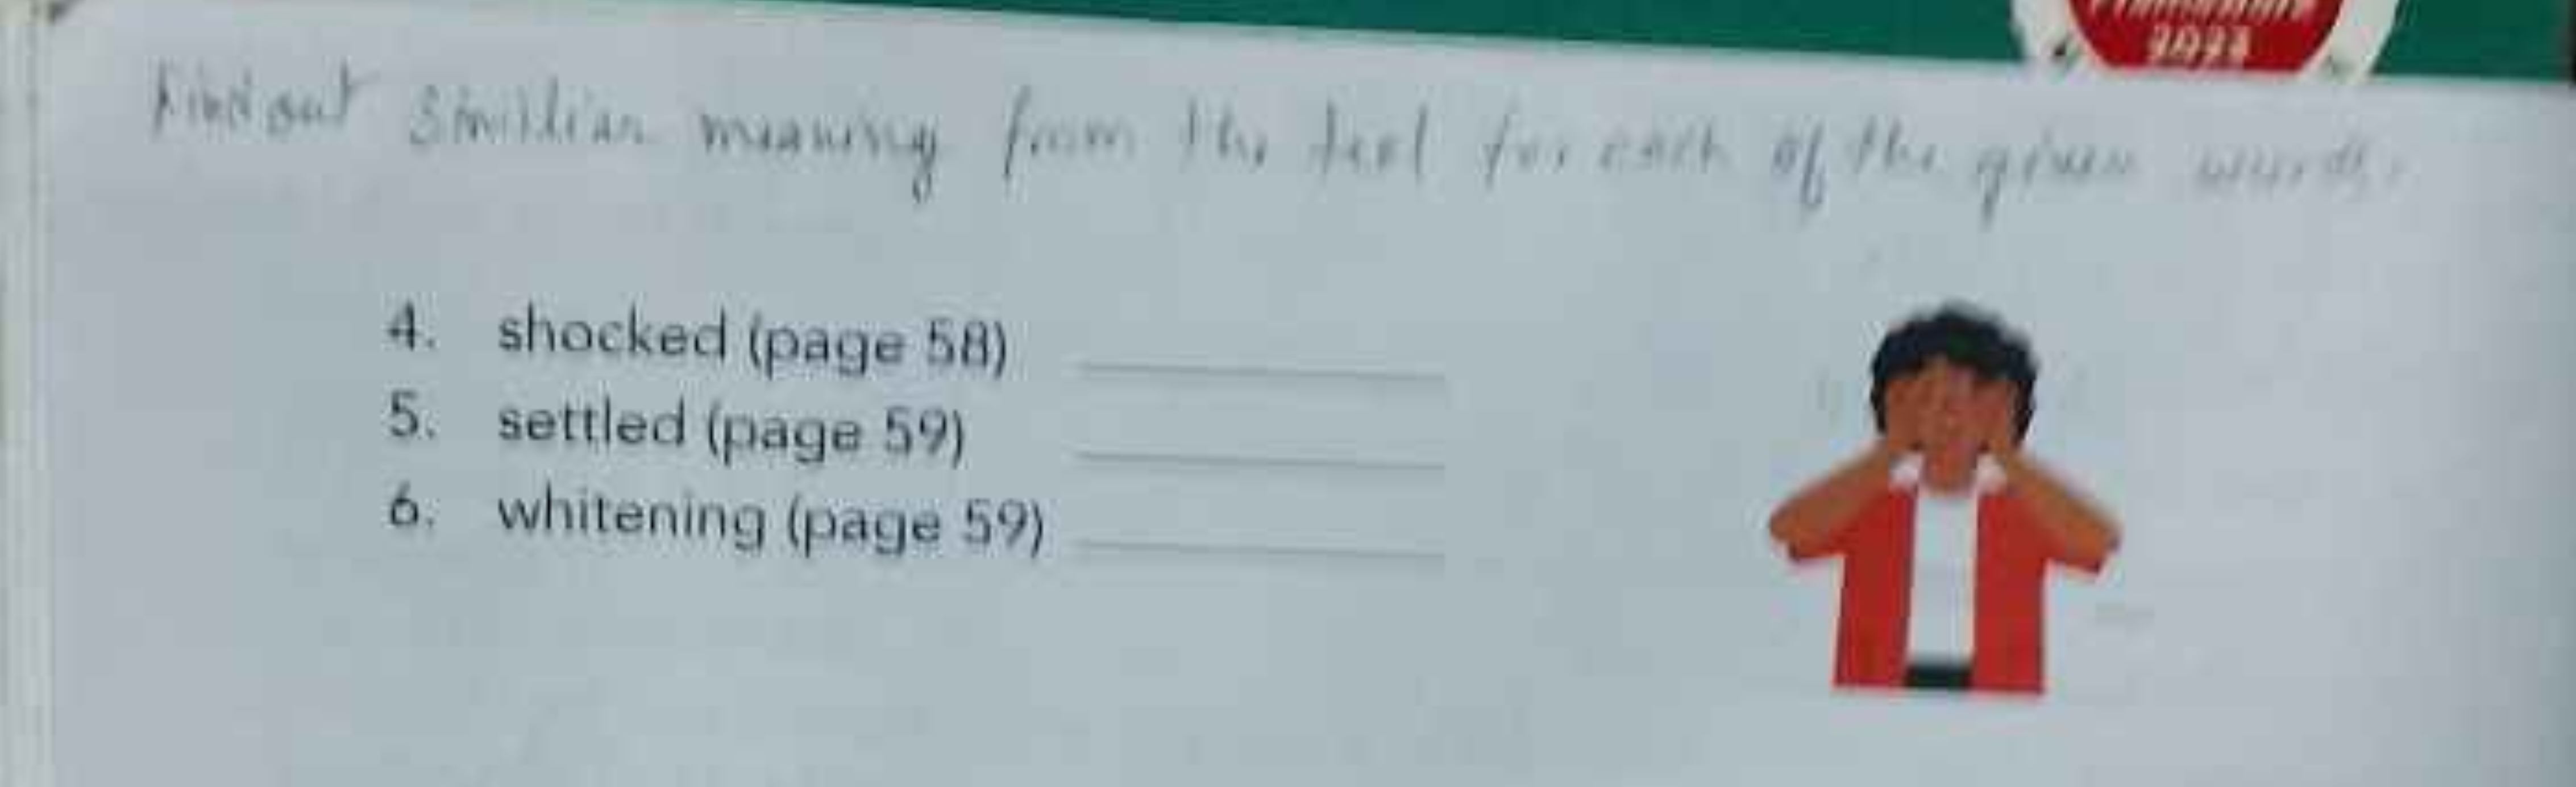 2023
Find out Similiar meaning from the text for each of the given words.
4. shocked (page 58)
5. settled (page 59)
6. whitening (page 59)